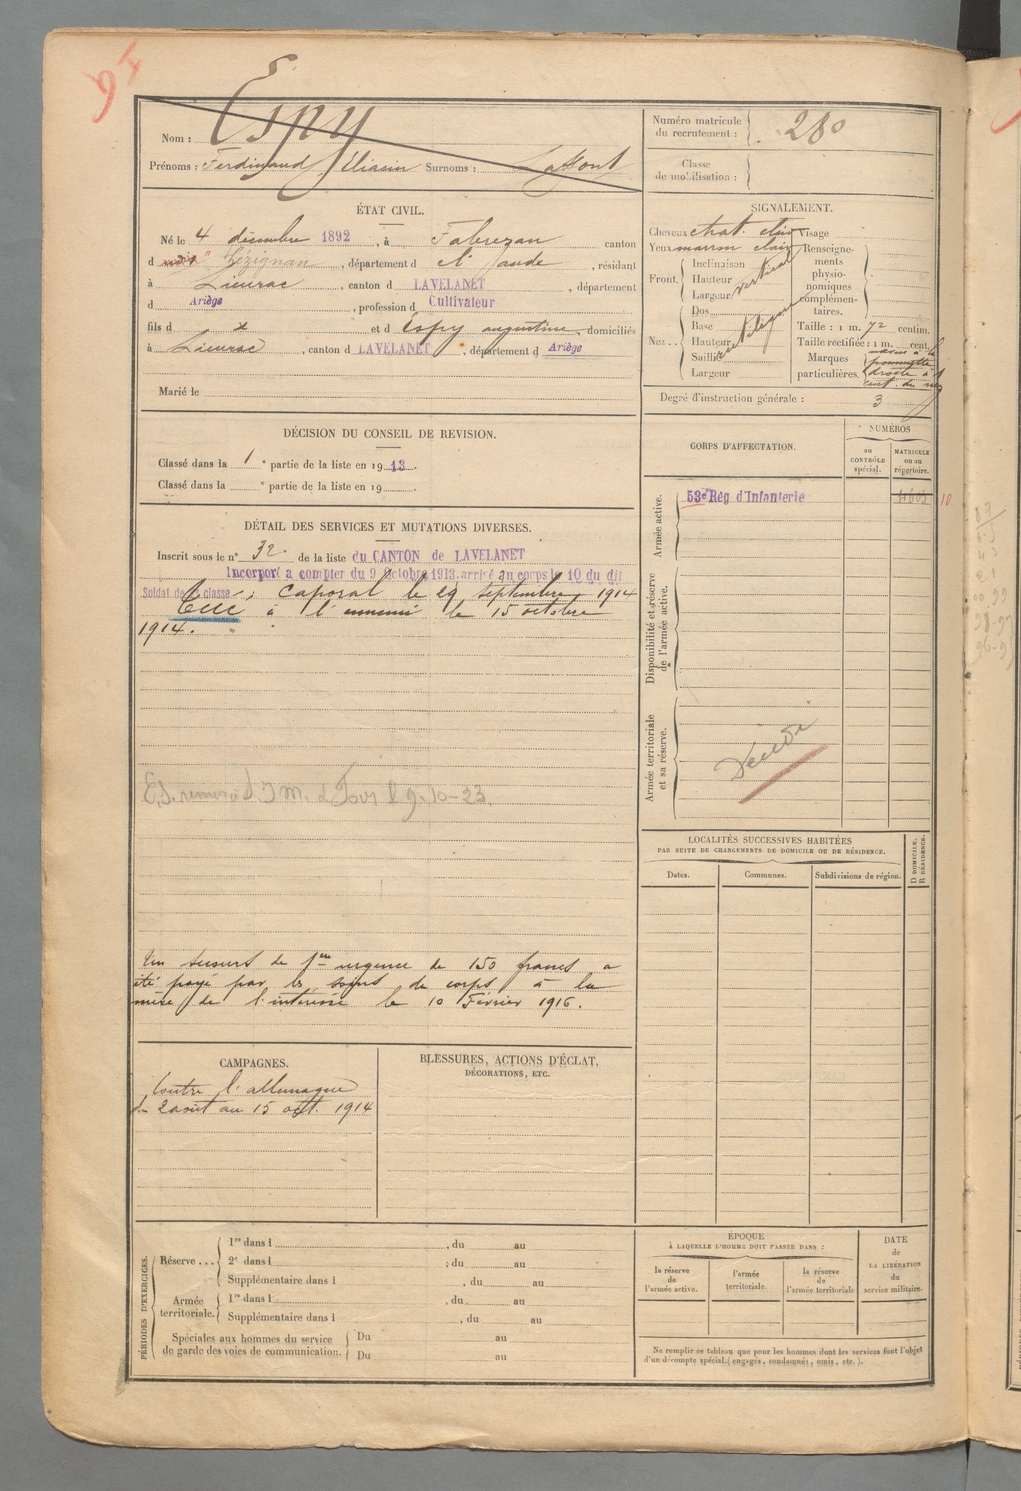 Nom : Espy
Prénoms : Ferdinand Surnoms : Laffont
Numéro matricule du recrutement : 280
Classe de mobilisation :
ÉTAT CIVIL.
Né le 4 décembre 1892, à Fabrezan canton
d Lézignan, département d l'aude, résidant
à Lieurac, canton d LAVELANET, département
d Ariège, profession d Cultivateur
fils d x et d Espy augustine domiciliés
à Lieurac, canton d LAVELANET, département d Ariège
Marié le
SIGNALEMENT.
Cheveux chat. clair Visage
Yeux marron clair Renseignements physionomiques complémentaires.
Front. Inclinaison vertical
Hauteur
Largeur
Nez .. Dos rectiligne
Base
Hauteur
Saillie
Largeur
Taille : 1 m. 72 centim.
Taille rectifiée : 1 m. cent.
Marques particulières. à la
pommette
droite à 1
cent. du nez
Degré d'instruction générale : 3
DÉCISION DU CONSEIL DE REVISION.
Classé dans la 1e partie de la liste en 1913.
Classé dans la e partie de la liste en 19
DÉTAIL DES SERVICES ET MUTATIONS DIVERSES.
Inscrit sous le n° 32 de la liste du CANTON de LAVELANET
Incorporé à compter du 9 Octobre 1913 arrivé au corps le 10 du dit
Soldat de 2e classe; Caporal le 29 septembre 1914
Tué à l'ennemi le 15 octobre
1914.
E.S. 9-10-23.
Un secours de 1ère urgence de 150 francs a
été payé par les soins de corps à la
mère de l'intéressé le 10 Février 1916.
CORPS D'AFFECTATION.
NUMÉROS
au CONTRÔLE spécial.
MATRICULE ou au répertoire.
Armée active.
53e Rég d'Infanterie
10
Disponibilité et réserve de l'armée active.
Armée territoriale et sa réserve.
Décédé
LOCALITÉS SUCCESSIVES HABITÉES
PAR SUITE DE CHANGEMENTS DE DOMICILE OU DE RÉSIDENCE.
Dates.
Communes.
Subdivisions de région.
D DOMICILE.
R RÉSIDENCE.
CAMPAGNES.
Contre l'allemagne
du 2 août au 15 oct. 1914
BLESSURES, ACTIONS D'ÉCLAT,
DÉCORATIONS, ETC.
PÉRIODES D'EXERCICES.
Réserve ... 1re dans l , du au
2e dans l , du au
Supplémentaire dans l , du au
Armée territoriale. 1re dans l , du au
Supplémentaire dans l , du au
Spéciales aux hommes du service
de garde des voies de communication.
Du au
Du au
ÉPOQUE
À LAQUELLE L'HOMME DOIT PASSER DANS :
la réserve de l'armée active.
l'armée territoriale.
la réserve de l'armée territoriale
DATE de LA LIBÉRATION du service militaire.
Ne remplir ce tableau que pour les hommes dont les services font l'objet
d'un décompte spécial. (engagés, condamnés, omis, etc.).